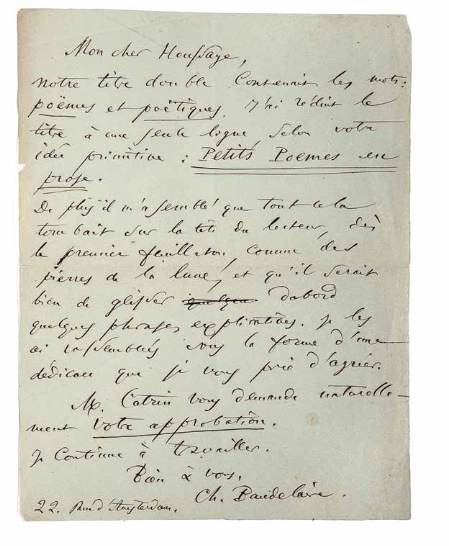 Mon cher Houssaye,
Notre titre double contenait les mots:
poëmes et poëtiques. J'ai réduit le
titre à une seule ligne selon votre
idée primitive : Petits Poëmes en
prose.
De plus il m'a semblé que tout cela
tombait sur la tête du lecteur, dès
le premier feuilleton, comme des
pierres de la lune, et qu'il serait
bien de glisser quelques dabord
quelques phrases explicatives. Je les
ai rassemblées sous la forme d'une
dédicace que je vous prie d'agréer.
M. Catrin vous demande naturelle-
ment votre approbation.
Je continue à travailler.
Bien à vous,
Ch. Baudelaire.
22. Rue d'Amsterdam.